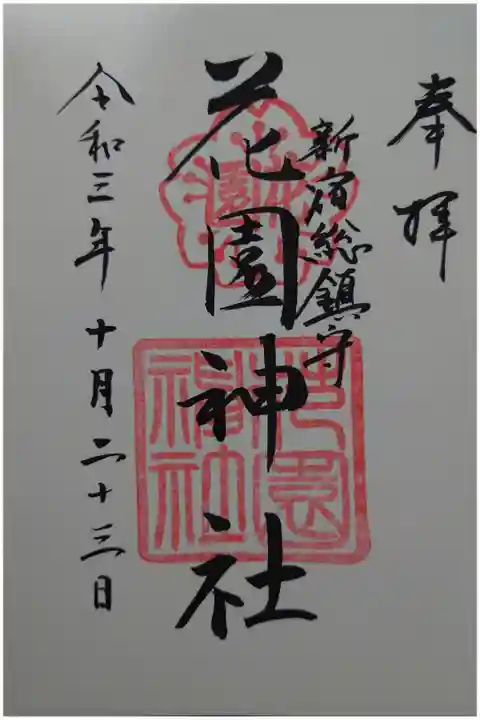 奉拝
新宿総鎮守
花園神社
令和三年十月二十三日
花園
花園神社